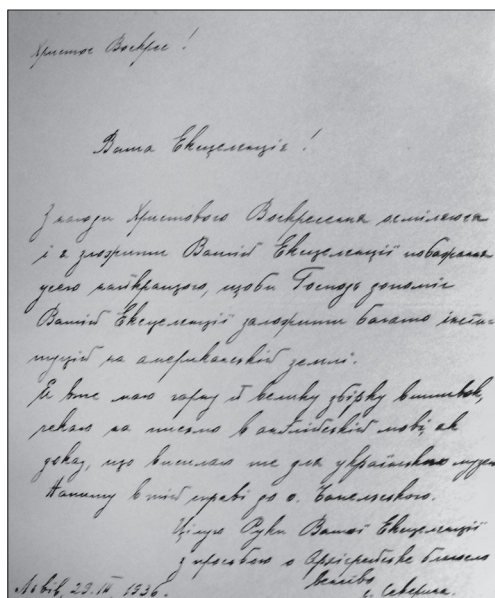 Христос Воскрес!
Ваша Екцеленціє!
З нагоди Христового Воскресення осмілююся
і я зложити Вашій Екцеленції побажання
усего найкращого, щоби Господь допоміг
Вашій Екцеленції заложити багато інсти-
туцій на американській землі.
Я вже маю гарну й велику збірку вишивок,
чекаю на письмо в англійській мові, як
доказ, що висилаю те для українського музею
Напишу в тій справі до о.
Цілую Руки Вашої Екцеленції
з просьбою о Архієрейське благосло
венство
Львів, 29.III 1936. с. Северина.